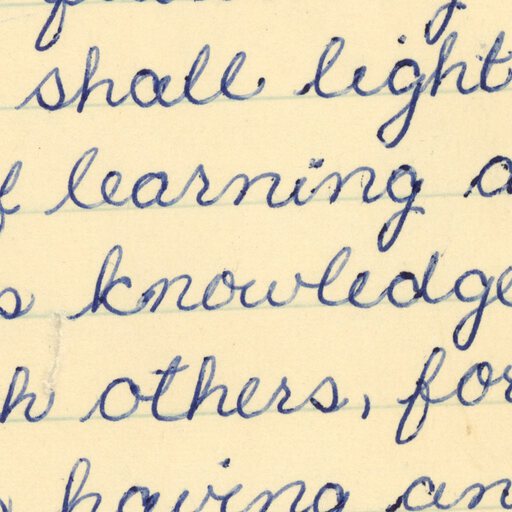 shall light
learning a
knowledge
others, for
having an